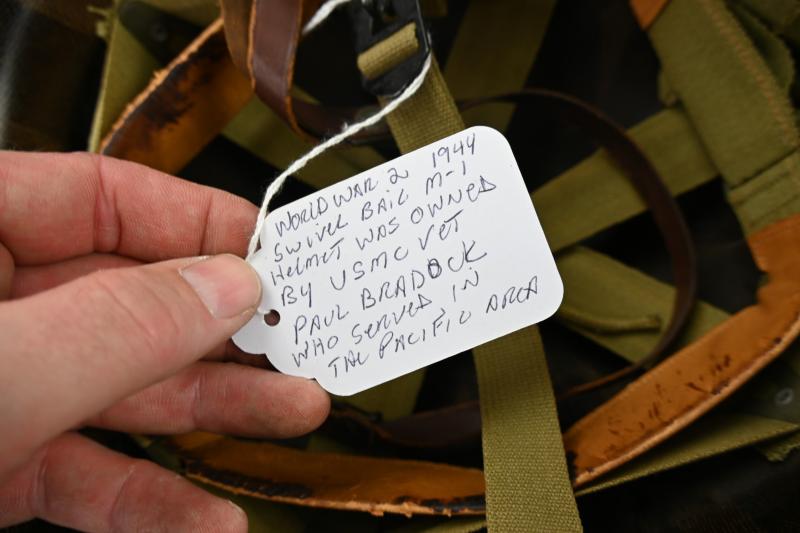 WORLD WAR 2 1944
SWIVEL BAIL M-1
HELMET WAS OWNED
BY USMC VET
PAUL BRADOCK
WHO SERVED IN
THE PACIFIC AREA